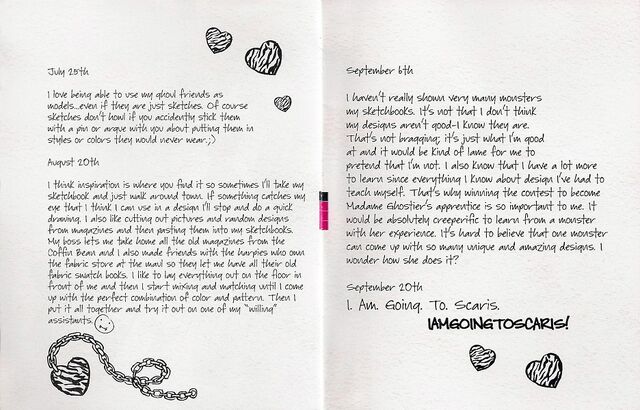 July 25th
I love being able to use my ghoul friends as
models...even if they are just sketches. Of course
sketches don't howl if you accidently stick them
with a pin or argue with you about putting them in
styles or colors they would never wear.;)
August 20th
I think inspiration is where you find it so sometimes I'll take my
sketchbook and just walk around town. If something catches my
eye that I think I can use in a design I'll stop and do a quick
drawing. I also like cutting out pictures and random designs
from magazines and then pasting them into my sketchbooks.
My boss lets me take home all the old magazines from the
Coffin Bean and I also made friends with the harpies who own
the fabric store at the maul so they let me have all their old
fabric swatch books. I like to lay everything out on the floor in
front of me and then I start mixing and matching until I come
up with the perfect combination of color and pattern. Then I
put it all together and try it out on one of my "willing"
assistants.
September 6th
I haven't really shown very many monsters
my sketchbooks. It's not that I don't think
my designs aren't good-I know they are.
That's not bragging; it's just what I'm good
at and it would be kind of lame for me to
pretend that I'm not. I also know that I have a lot more
to learn since everything I know about design I've had to
teach myself. That's why winning the contest to become
Madame Ghostier's apprentice is so important to me. It
would be absolutely creeperific to learn from a monster
with her experience. It's hard to believe that one monster
can come up with so many unique and amazing designs. I
wonder how she does it?
September 20th
I. Am. Going. To. Scaris.
IAMGOINGTOSCARIS!